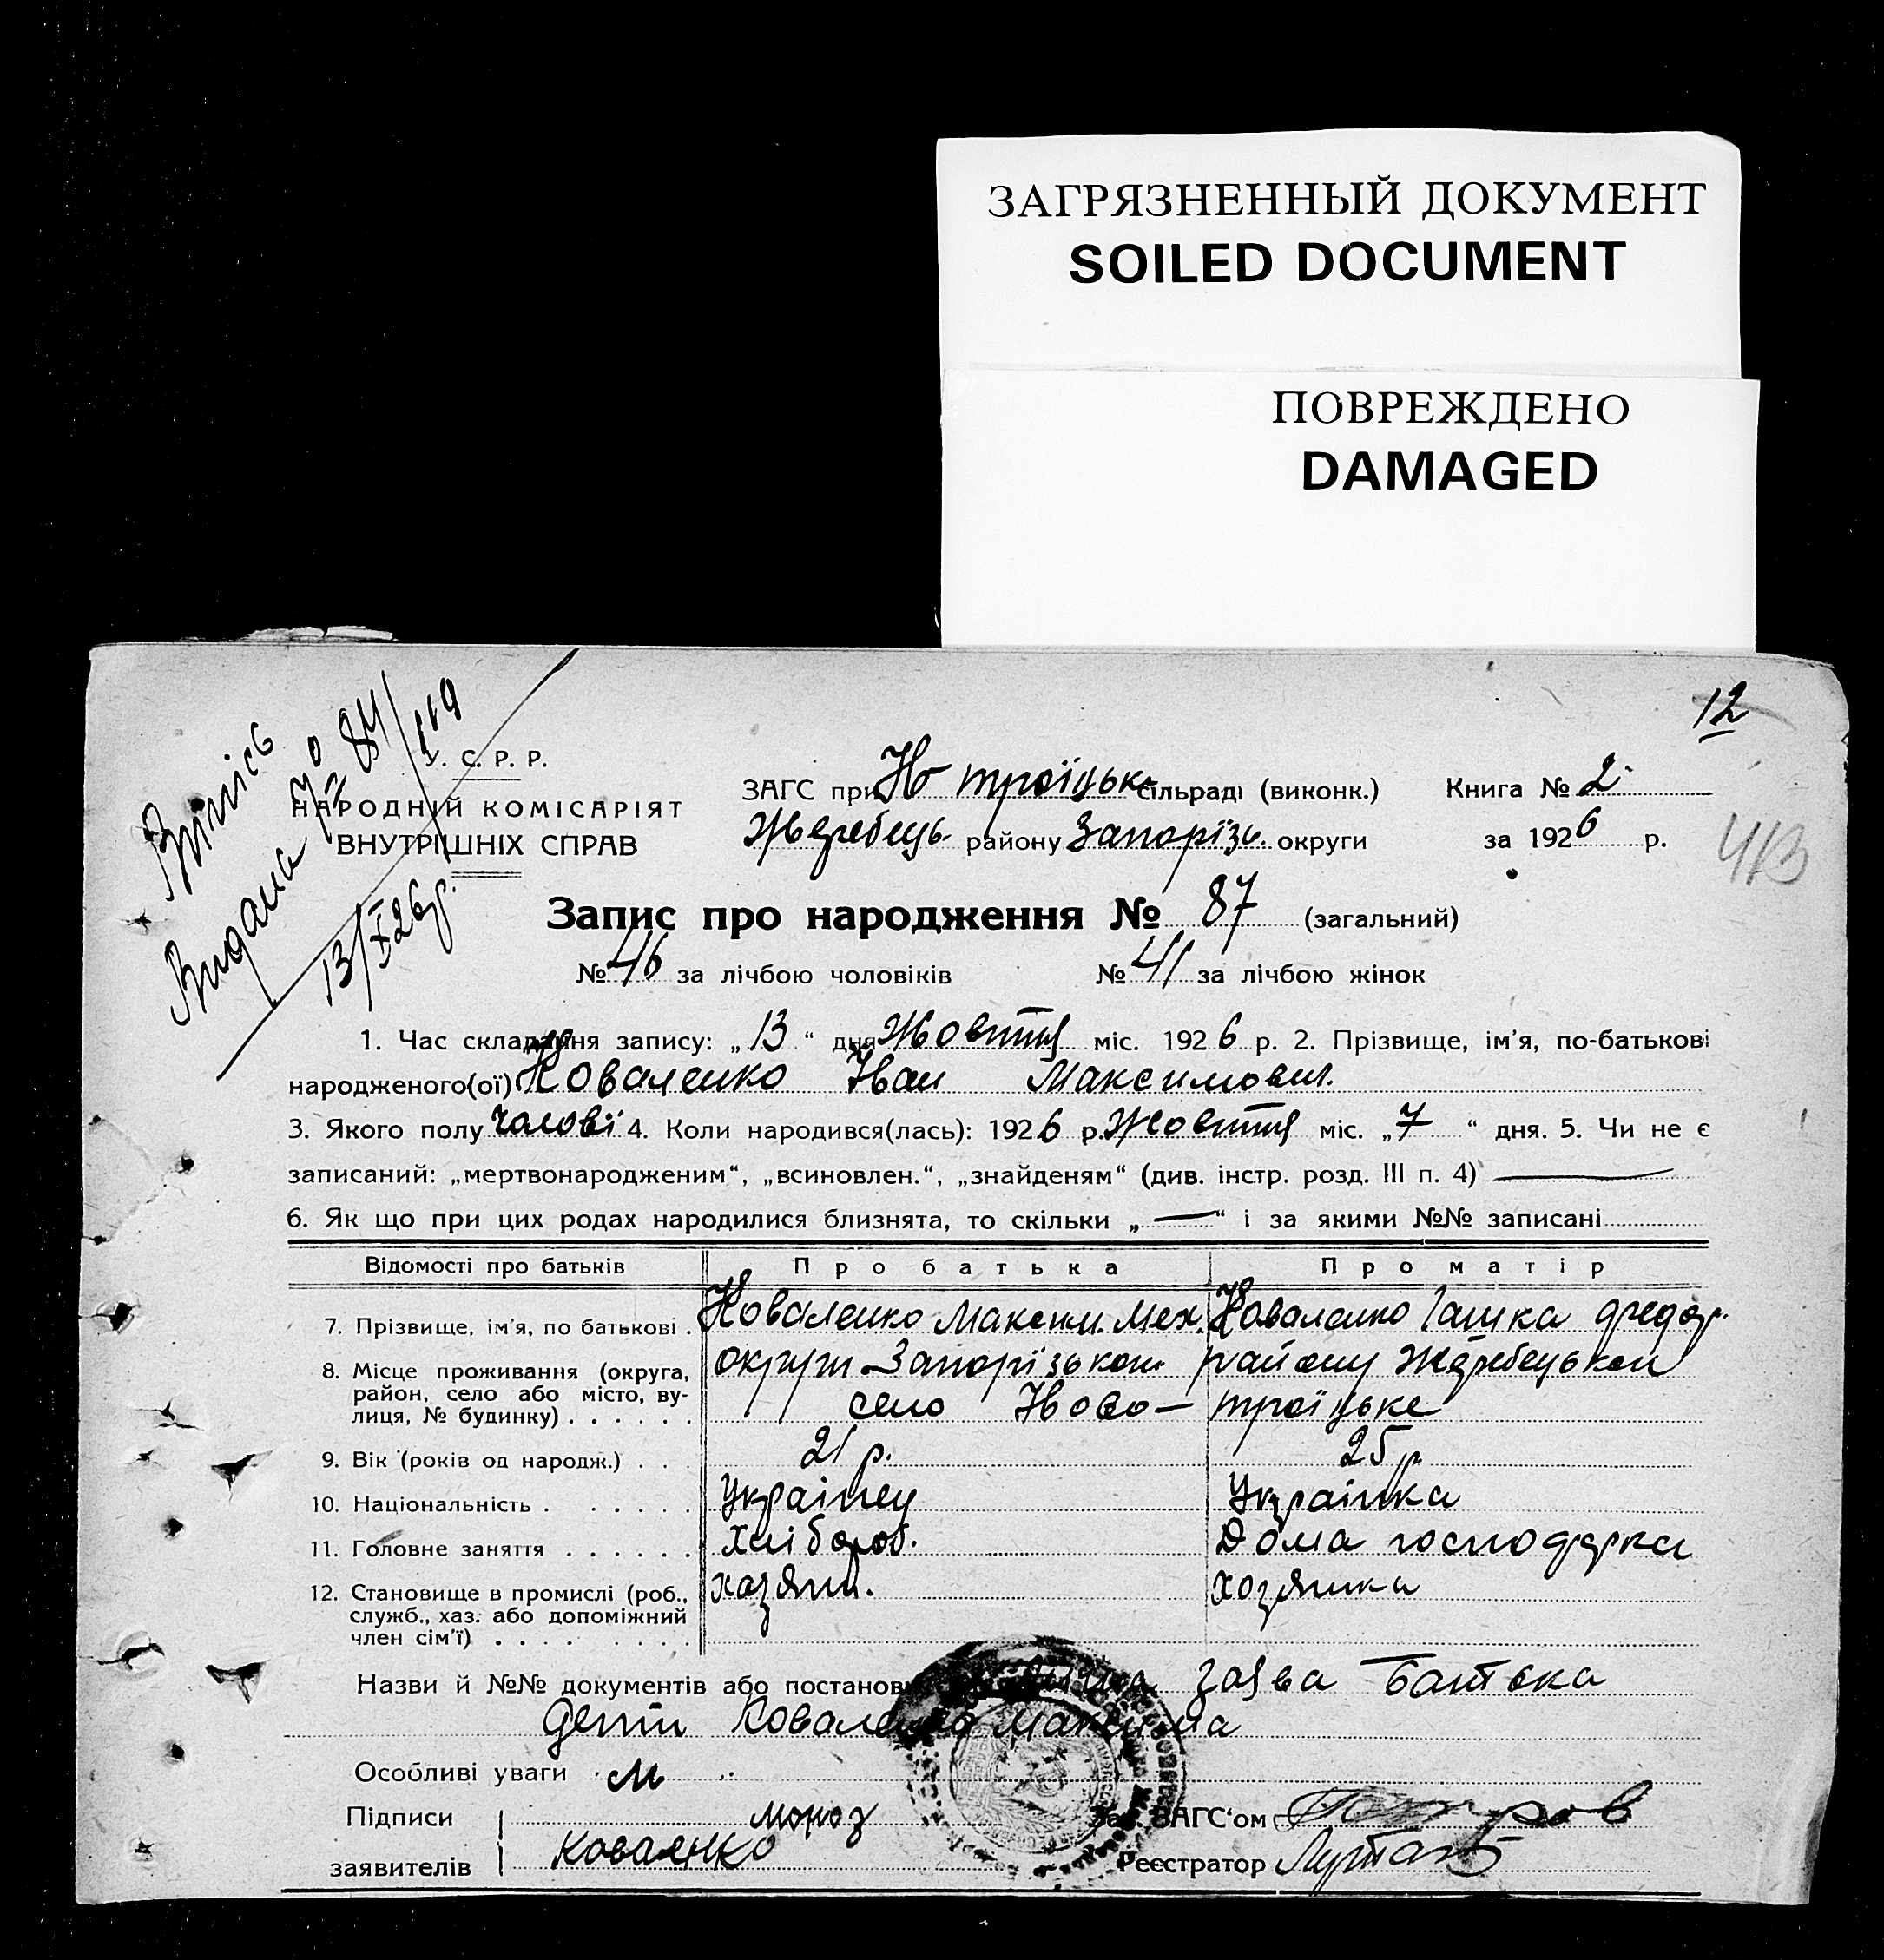 ЗАГРЯЗНЕННЫЙ ДОКУМЕНТ
SOILED DOCUMENT
ПОВРЕЖДЕНО
DAMAGED
12
Випись
Видана № 84/119
13/X 26р.
У. С. Р. Р.
НАРОДНІЙ КОМІСАРІЯТ
ВНУТРІШНІХ СПРАВ
ЗАГС при Но троїцьк. сільраді (виконк.) Книга № 2
Жеребець. району Запорізь. округи за 1926 р.
413
Запис про народження № 87 (загальний)
№ 46 за лічбою чоловіків № 41 за лічбою жінок
1. Час складання запису: „13“ дня Жовтня міс. 1926 р. 2. Прізвище, ім'я, по-батькові
народженого(ої) Коваленко Іван Максимович.
3. Якого полу чолові 4. Коли народився(лась): 1926 р. Жовтня міс. „7“ дня. 5. Чи не є
записаний: „мертвонародженим“, „всиновлен.“, „знайденям“ (див. інстр. розд. III п. 4) —
6. Як що при цих родах народилися близнята, то скільки „—“ і за якими №№ записані
Відомості про батьків Про батька Про матір
7. Прізвище, ім'я, по батькові . Коваленко Максим. Мех. Коваленко Гашка Федор.
8. Місце проживання (округа, округи Запорізькои району Жеребецькои
район, село або місто, ву-
лиця, № будинку) . . . . . . село Ново — троїцьке
9. Вік (років од народж.) . . . 21 р. 25 р.
10. Національність . . . . . . Українец Українка
11. Головне заняття . . . . . . Хлібороб. Дома господарка
12. Становище в промислі (роб., хазяин. хозяика
служб., хаз. або допоміжний
член сім'ї) . . . . . . . .
Назви й №№ документів або постанов заява батька
дети Коваленко Максима
Особливі уваги
Підписи мороз Зав. ЗАГС'ом
заявителів Коваленко Реєстратор